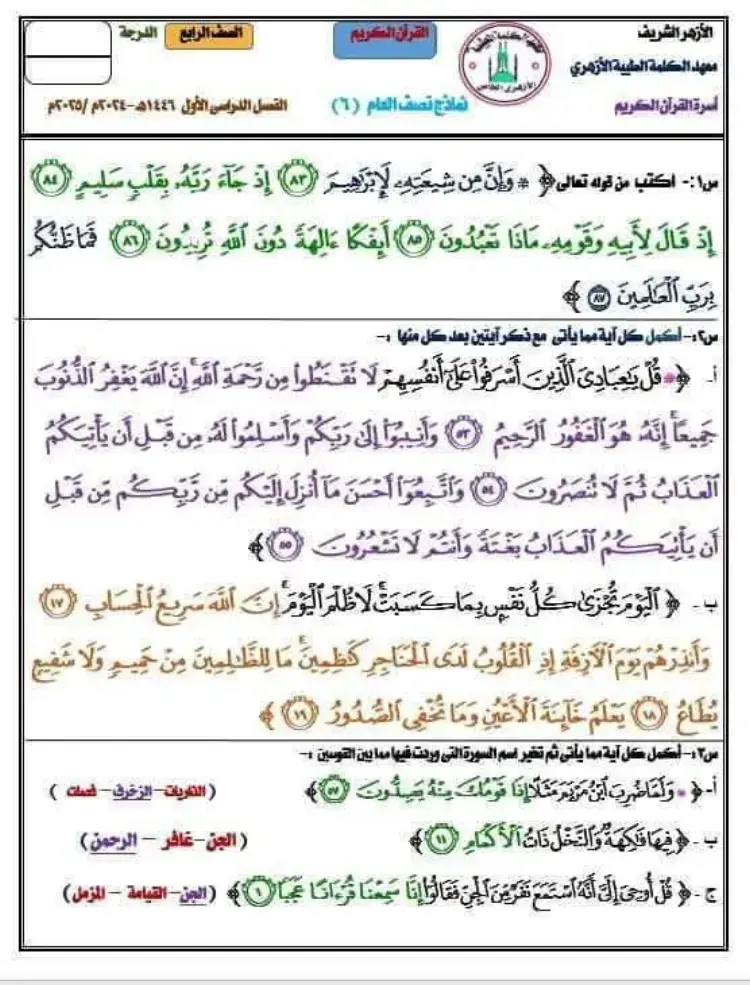 الأزهر الشريف
القرآن الكريم
الصف الرابع
الدرجة
معهد الكلمة الطيبة الأزهري
أسرة القرآن الكريم
نماذج نصف العام (٦)
الفصل الدراسي الأول ١٤٤٦هـ -٢٠٢٤م /٢٠٢٥م
س١:- أكتب من قوله تعالى ﴿ * وَإِنَّ مِن شِيعَتِهِۦ لَإِبْرَٰهِيمَ ٨٣ إِذْ جَآءَ رَبَّهُۥ بِقَلْبٍ سَلِيمٍ ٨٤
إِذْ قَالَ لِأَبِيهِ وَقَوْمِهِۦ مَاذَا تَعْبُدُونَ ٨٥ أَئِفْكًا ءَالِهَةً دُونَ ٱللَّهِ تُرِيدُونَ ٨٦ فَمَا ظَنُّكُم
بِرَبِّ ٱلْعَٰلَمِينَ ٨٧ ﴾
س٢:- أكمل كل آية مما يأتى مع ذكر آيتين بعد كل منها :-
أ- ﴿ * قُلْ يَٰعِبَادِىَ ٱلَّذِينَ أَسْرَفُوا۟ عَلَىٰٓ أَنفُسِهِمْ لَا تَقْنَطُوا۟ مِن رَّحْمَةِ ٱللَّهِ ۚ إِنَّ ٱللَّهَ يَغْفِرُ ٱلذُّنُوبَ
جَمِيعًا ۚ إِنَّهُۥ هُوَ ٱلْغَفُورُ ٱلرَّحِيمُ ٥٣ وَأَنِيبُوٓا۟ إِلَىٰ رَبِّكُمْ وَأَسْلِمُوا۟ لَهُۥ مِن قَبْلِ أَن يَأْتِيَكُمُ
ٱلْعَذَابُ ثُمَّ لَا تُنصَرُونَ ٥٤ وَٱتَّبِعُوٓا۟ أَحْسَنَ مَآ أُنزِلَ إِلَيْكُم مِّن رَّبِّكُم مِّن قَبْلِ
أَن يَأْتِيَكُمُ ٱلْعَذَابُ بَغْتَةً وَأَنتُمْ لَا تَشْعُرُونَ ٥٥ ﴾
ب- ﴿ ٱلْيَوْمَ تُجْزَىٰ كُلُّ نَفْسٍۭ بِمَا كَسَبَتْ ۚ لَا ظُلْمَ ٱلْيَوْمَ ۚ إِنَّ ٱللَّهَ سَرِيعُ ٱلْحِسَابِ ١٧
وَأَنذِرْهُمْ يَوْمَ ٱلْءَازِفَةِ إِذِ ٱلْقُلُوبُ لَدَى ٱلْحَنَاجِرِ كَٰظِمِينَ ۚ مَا لِلظَّٰلِمِينَ مِنْ حَمِيمٍ وَلَا شَفِيعٍ
يُطَاعُ ١٨ يَعْلَمُ خَآئِنَةَ ٱلْأَعْيُنِ وَمَا تُخْفِى ٱلصُّدُورُ ١٩ ﴾
س٣:- أكمل كل آية مما يأتى ثم تخير اسم السورة التى وردت فيها مما بين القوسين :-
أ- ﴿ * وَلَمَّا ضُرِبَ ٱبْنُ مَرْيَمَ مَثَلًا إِذَا قَوْمُكَ مِنْهُ يَصِدُّونَ ٥٧ ﴾ ( الذاريات- الزخرف- فصلت )
ب- ﴿ فِيهَا فَٰكِهَةٌ وَٱلنَّخْلُ ذَاتُ ٱلْأَكْمَامِ ١١ ﴾ ( الجن- غافر - الرحمن )
ج- ﴿ قُلْ أُوحِىَ إِلَىَّ أَنَّهُ ٱسْتَمَعَ نَفَرٌ مِّنَ ٱلْجِنِّ فَقَالُوٓا۟ إِنَّا سَمِعْنَا قُرْءَانًا عَجَبًا ١ ﴾ (الجن- القيامة - المزمل)